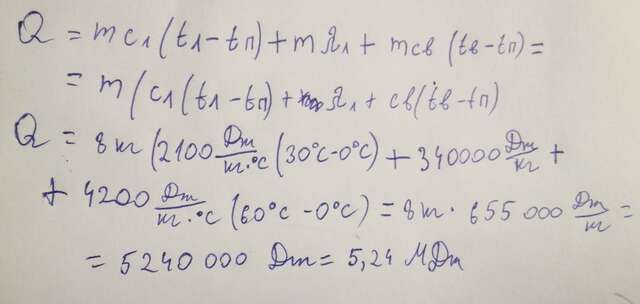 Q = mcл(tл-tп)+mλл+mcв(tв-tп)=
= m(cл(tл-tп)+λл+cв(tв-tп)
Q = 8кг(2100 Дж/кг·°C (30°C-0°C)+340000 Дж/кг +
+ 4200 Дж/кг·°C (60°C-0°C)=8кг·655000 Дж/кг =
= 5240000 Дж = 5,24 МДж